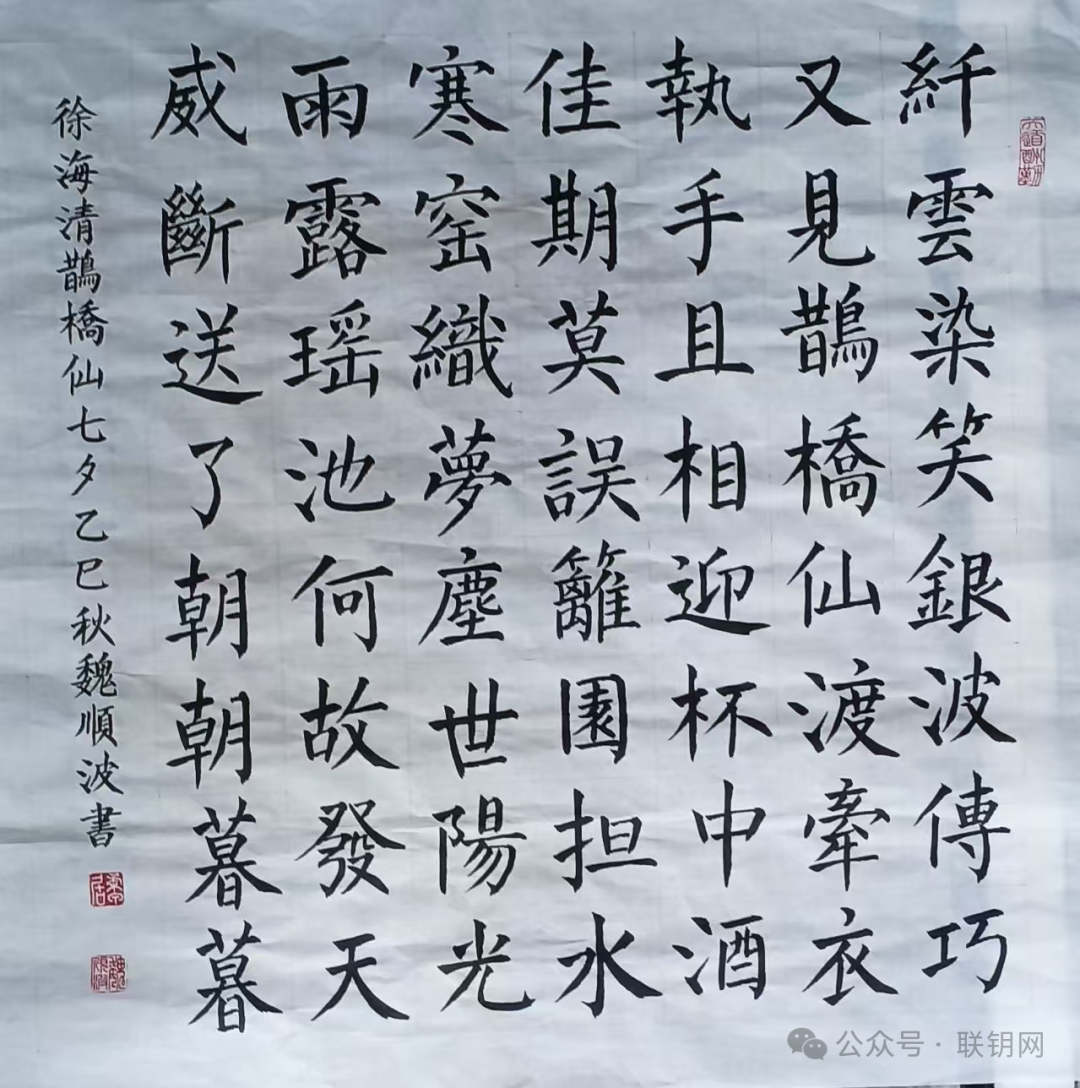 纤雲染笑銀波傳巧
又見鵲橋仙渡牽衣
執手且相迎杯中酒
佳期莫誤籬園担水
寒窑織夢塵世陽光
雨露瑶池何故發天
威斷送了朝朝暮暮
徐海清鵲橋仙七夕乙巳秋魏順波書
公众号·联钥网